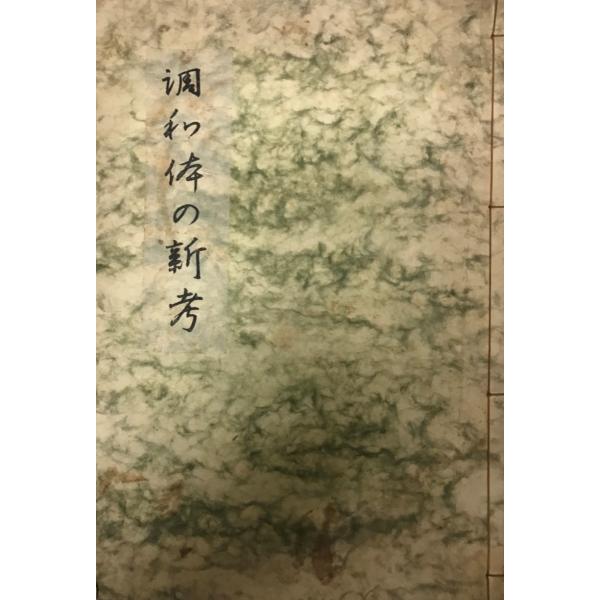 調和体の新考